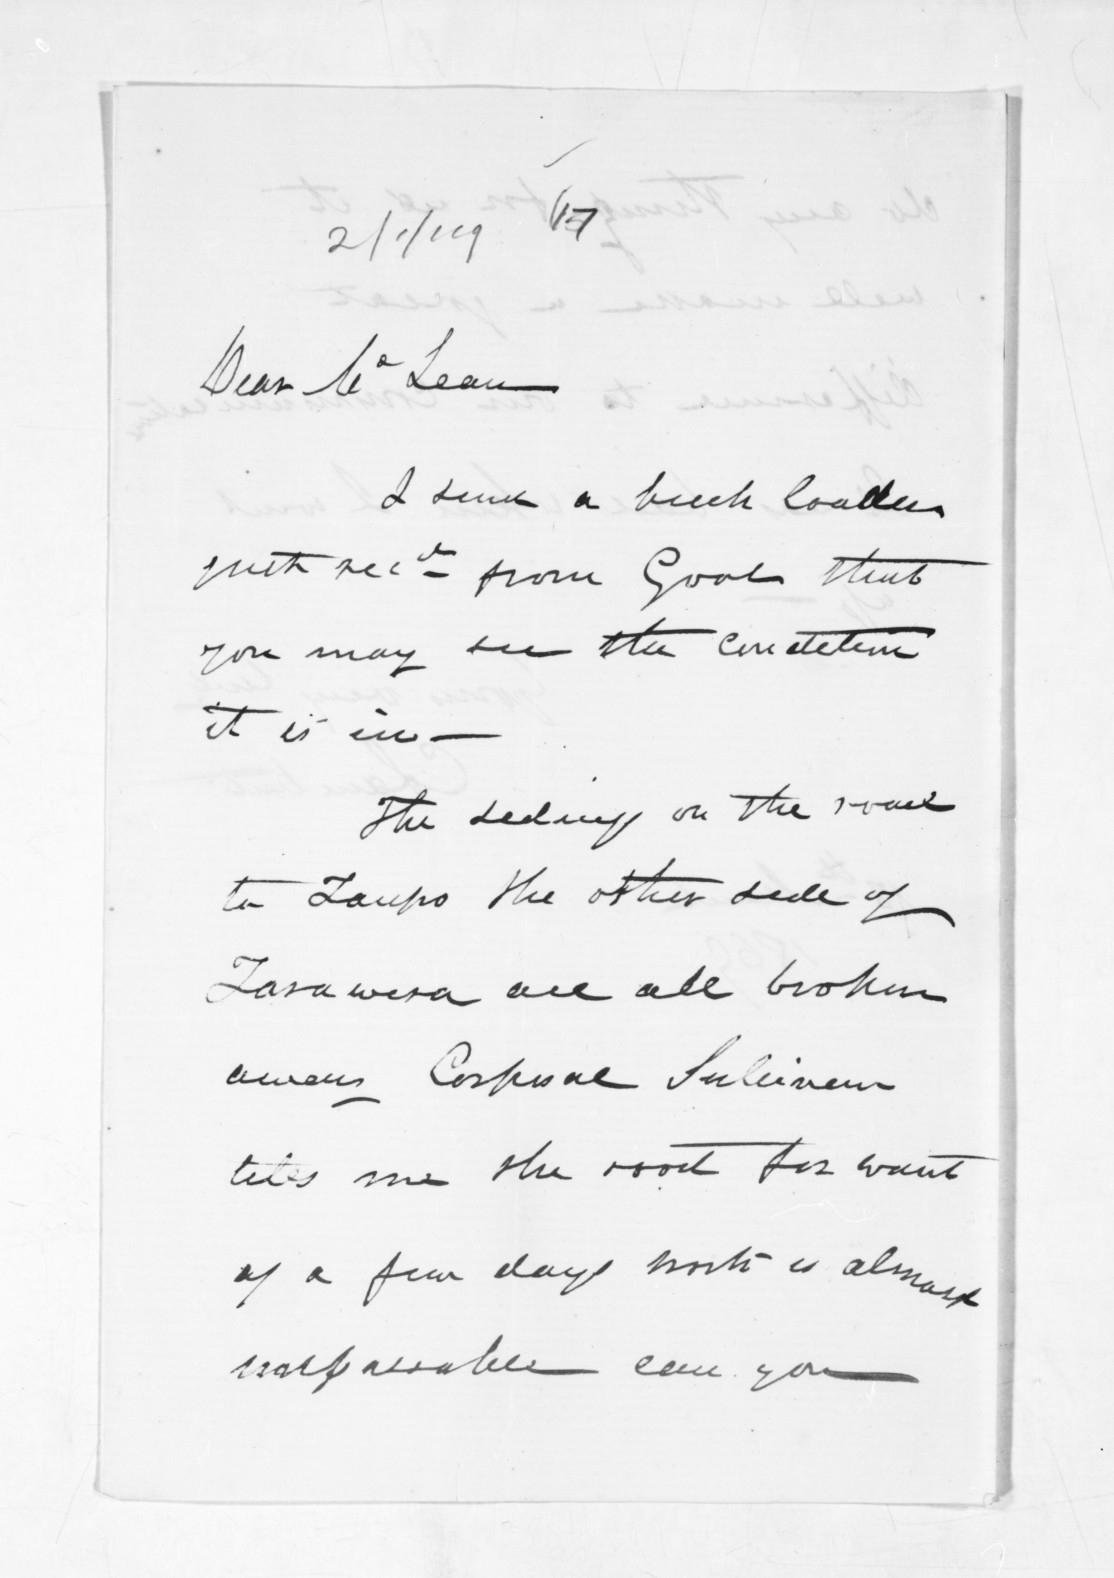 2/1/119 117
Dear Mc Lean
I send a breech loader
just recd from Gaol that
you may see the condition
it is in —
The sidings on the road
to Taupo the other side of
Tarawera are all broken
away Corporal Sulivan
tells me the road for want
of a few days work is almost
impassable can you